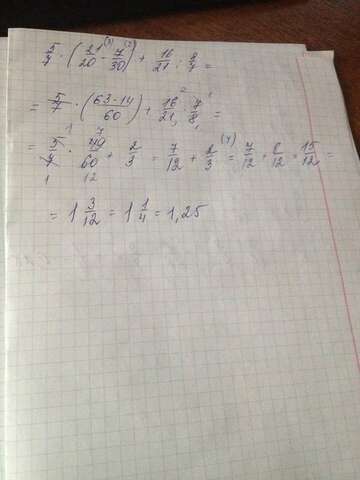 5/7 · (21/20 - 7/30) + 16/21 : 8/7 =
= 5/7 · (63-14/60) + 16/21 · 7/8 =
= 5/7 · 49/60 + 2/3 = 7/12 + 2/3 = 7/12 + 8/12 = 15/12 =
= 1 3/12 = 1 1/4 = 1,25